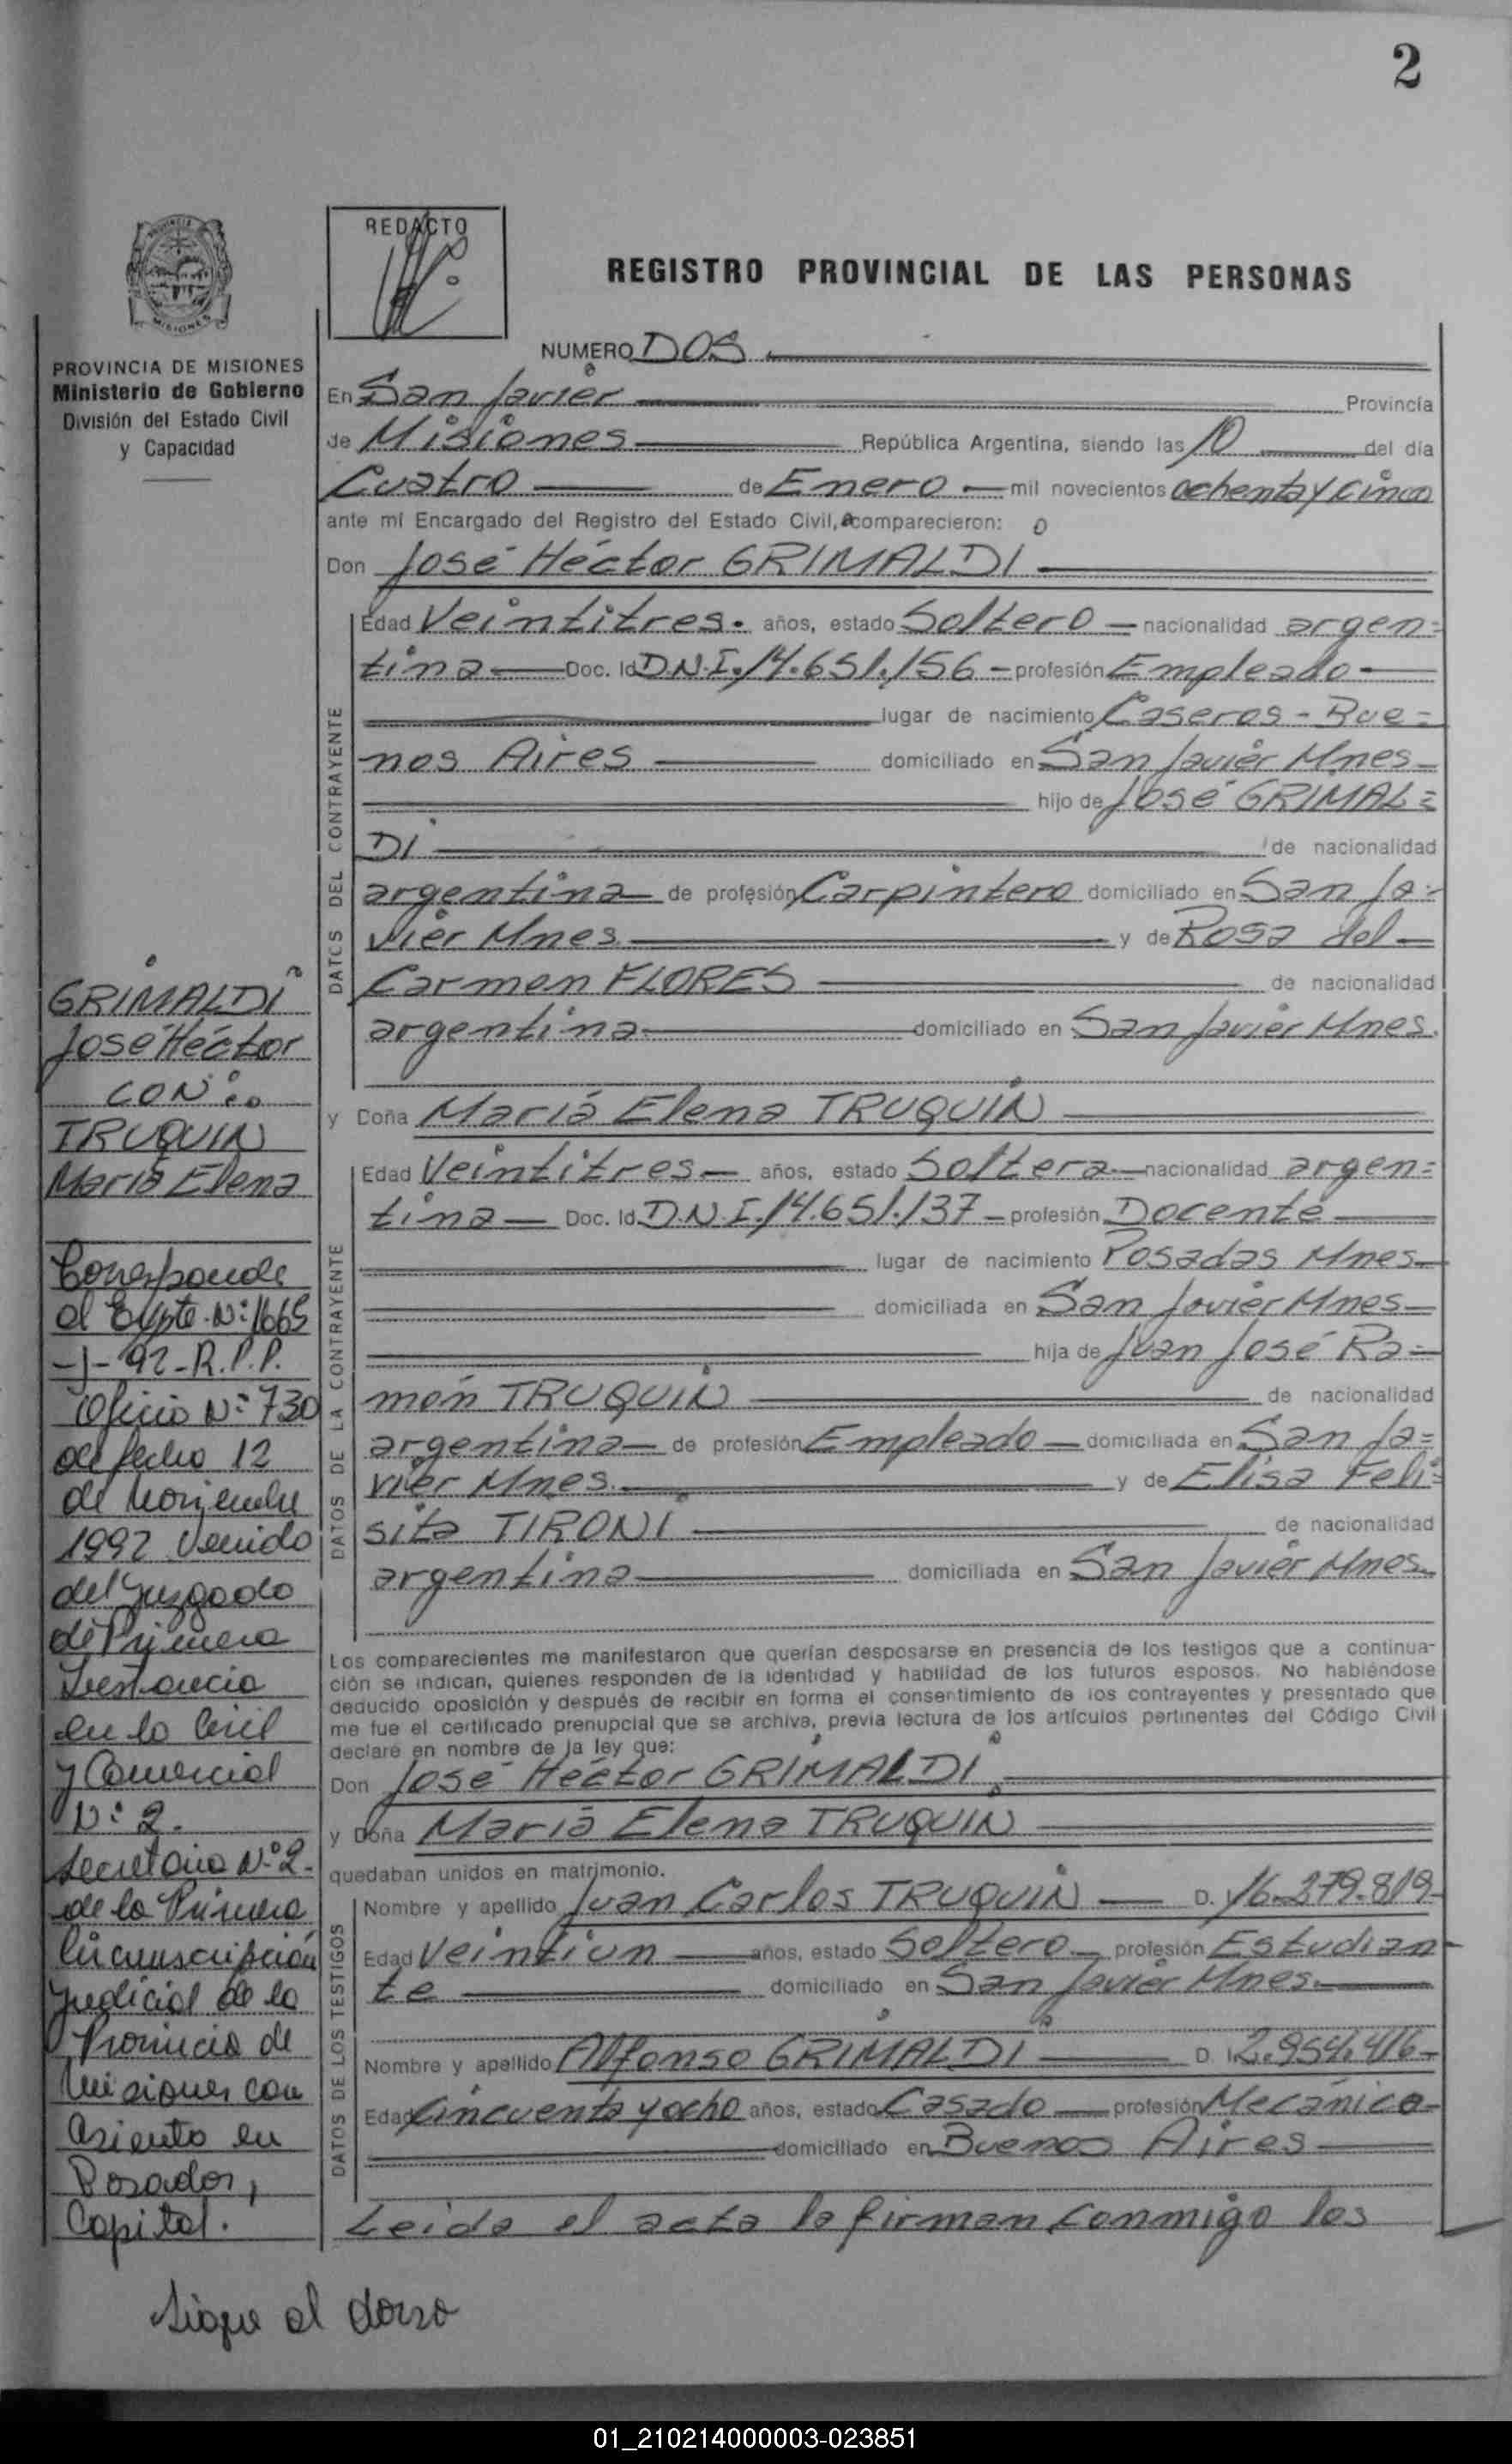 2
PROVINCIA
MISIONES
PROVINCIA DE MISIONES
Ministerio de Gobierno
División del Estado Civil
y Capacidad
REDACTO
REGISTRO PROVINCIAL DE LAS PERSONAS
NUMERO DOS
En San Javier Provincia
de Misiones República Argentina, siendo las 10 del día
Cuatro de Enero mil novecientos ochenta y cinco
ante mi Encargado del Registro del Estado Civil, comparecieron:
Don José Héctor GRIMALDI
DATOS DEL CONTRAYENTE
Edad Veintitres. años, estado Soltero nacionalidad argen=
tina Doc. Id D.N.I. 14.651.156 profesión Empleado
lugar de nacimiento Caseros - Bue=
nos Aires domiciliado en San Javier Mnes
hijo de José GRIMAL=
DI de nacionalidad
argentina de profesión Carpintero domiciliado en San Ja=
vier Mnes y de Rosa del
Carmen FLORES de nacionalidad
argentina domiciliado en San Javier Mnes.
y Doña María Elena TRUQUIN
DATOS DE LA CONTRAYENTE
Edad Veintitres años, estado Soltera nacionalidad argen=
tina Doc. Id. D.N.I. 14.651.137 profesión Docente
lugar de nacimiento Posadas Mnes
domiciliada en San Javier Mnes
hija de Juan José Ra=
món TRUQUIN de nacionalidad
argentina de profesión Empleado domiciliada en San Ja=
vier Mnes. y de Elisa Feli=
sita TIRONI de nacionalidad
argentina domiciliada en San Javier Mnes.
Los comparecientes me manifestaron que querían desposarse en presencia de los testigos que a continua-
ción se indican, quienes responden de la identidad y habilidad de los futuros esposos. No habiéndose
deducido oposición y después de recibir en forma el consentimiento de los contrayentes y presentado que
me fue el certificado prenupcial que se archiva, previa lectura de los artículos pertinentes del Código Civil
declaré en nombre de la ley que:
Don José Héctor GRIMALDI
y Doña María Elena TRUQUIN
quedaban unidos en matrimonio.
DATOS DE LOS TESTIGOS
Nombre y apellido Juan Carlos TRUQUIN D. I. 16.279.819
Edad Veintiun años, estado Soltero profesión Estudian
te domiciliado en San Javier Mnes.
Nombre y apellido Alfonso GRIMALDI D. I. 2.954.416
Edad Cincuenta y ocho años, estado Casado profesión Mecánico
domiciliado en Buenos Aires
Leida el acta la firman conmigo los
GRIMALDI
José Héctor
CON:
TRUQUIN
María Elena
Corresponde
al Expte. Nº: 1665
-J-92-R.P.P.
Oficio Nº 730
de fecha 12
de Noviembre
1992 venido
del Juzgado
de Primera
Instancia
en lo Civil
y Comercial
Nº: 2.
Secretaria Nº 2.
de la Primera
Circunscripción
Judicial de la
Provincia de
Misiones con
asiento en
Posadas,
Capital.
Sigue al dorso
01_210214000003-023851